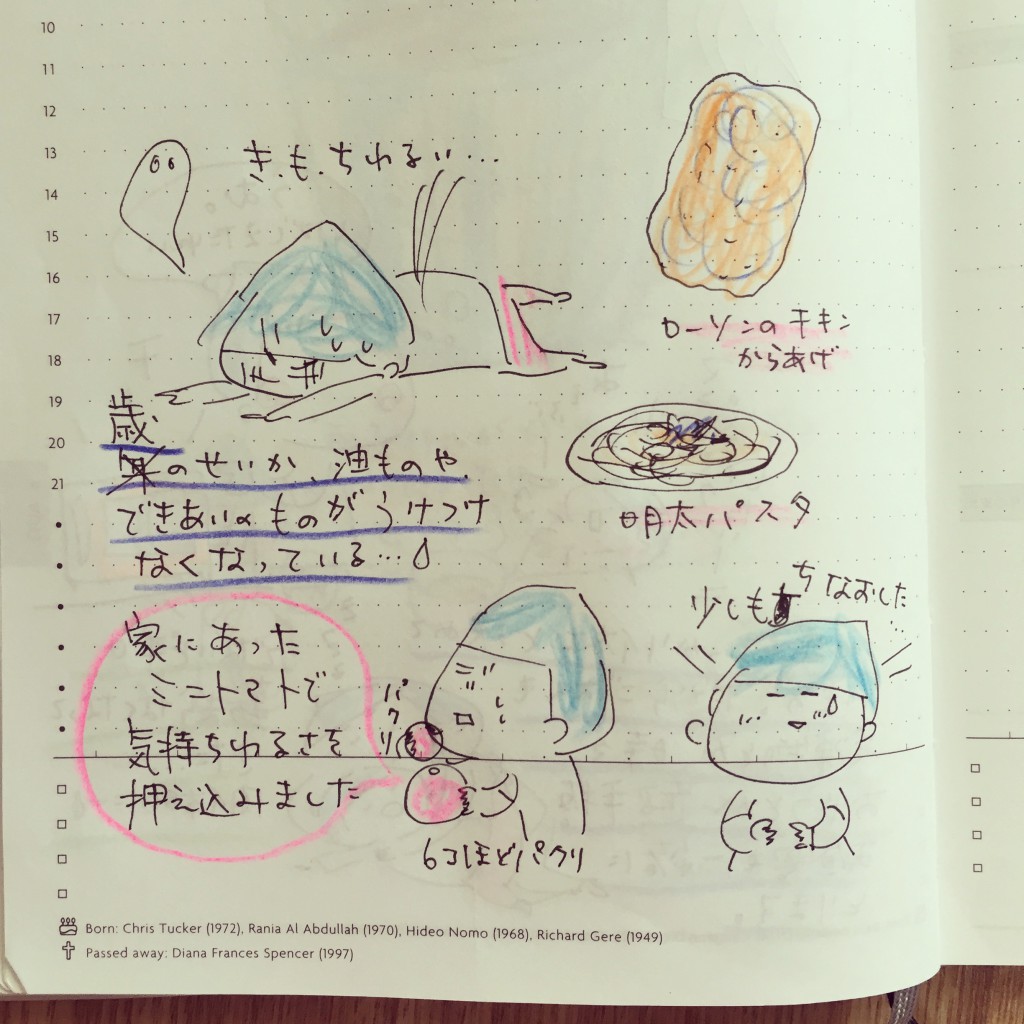 10
11
12
13
14
15
16
17
18
19
20
21
きもちわるい…
ローソンのチキン
からあげ
明太パスタ
歳
のせいか、油ものや
できあいのものがうけつけ
なくなっている…
家にあった
ミニトマトで
気持ちわるさを
押え込みました
パクリ
6コほどパクリ
少しもちなおした
Born: Chris Tucker (1972), Rania Al Abdullah (1970), Hideo Nomo (1968), Richard Gere (1949)
Passed away: Diana Frances Spencer (1997)